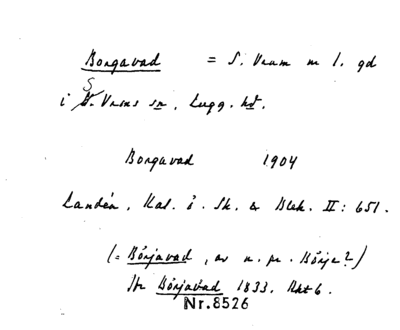 Borgavad = S. Vram n 1. gd
i S. Vrams sn, Lugg. hd.
Borgavad 1904
Landén, Kal. ö. Sk. & Blek. II: 651.
(= Börjavad, av n. pr. Börje?)
Jfr Börjavad 1833. Akt 6.
Nr. 8526